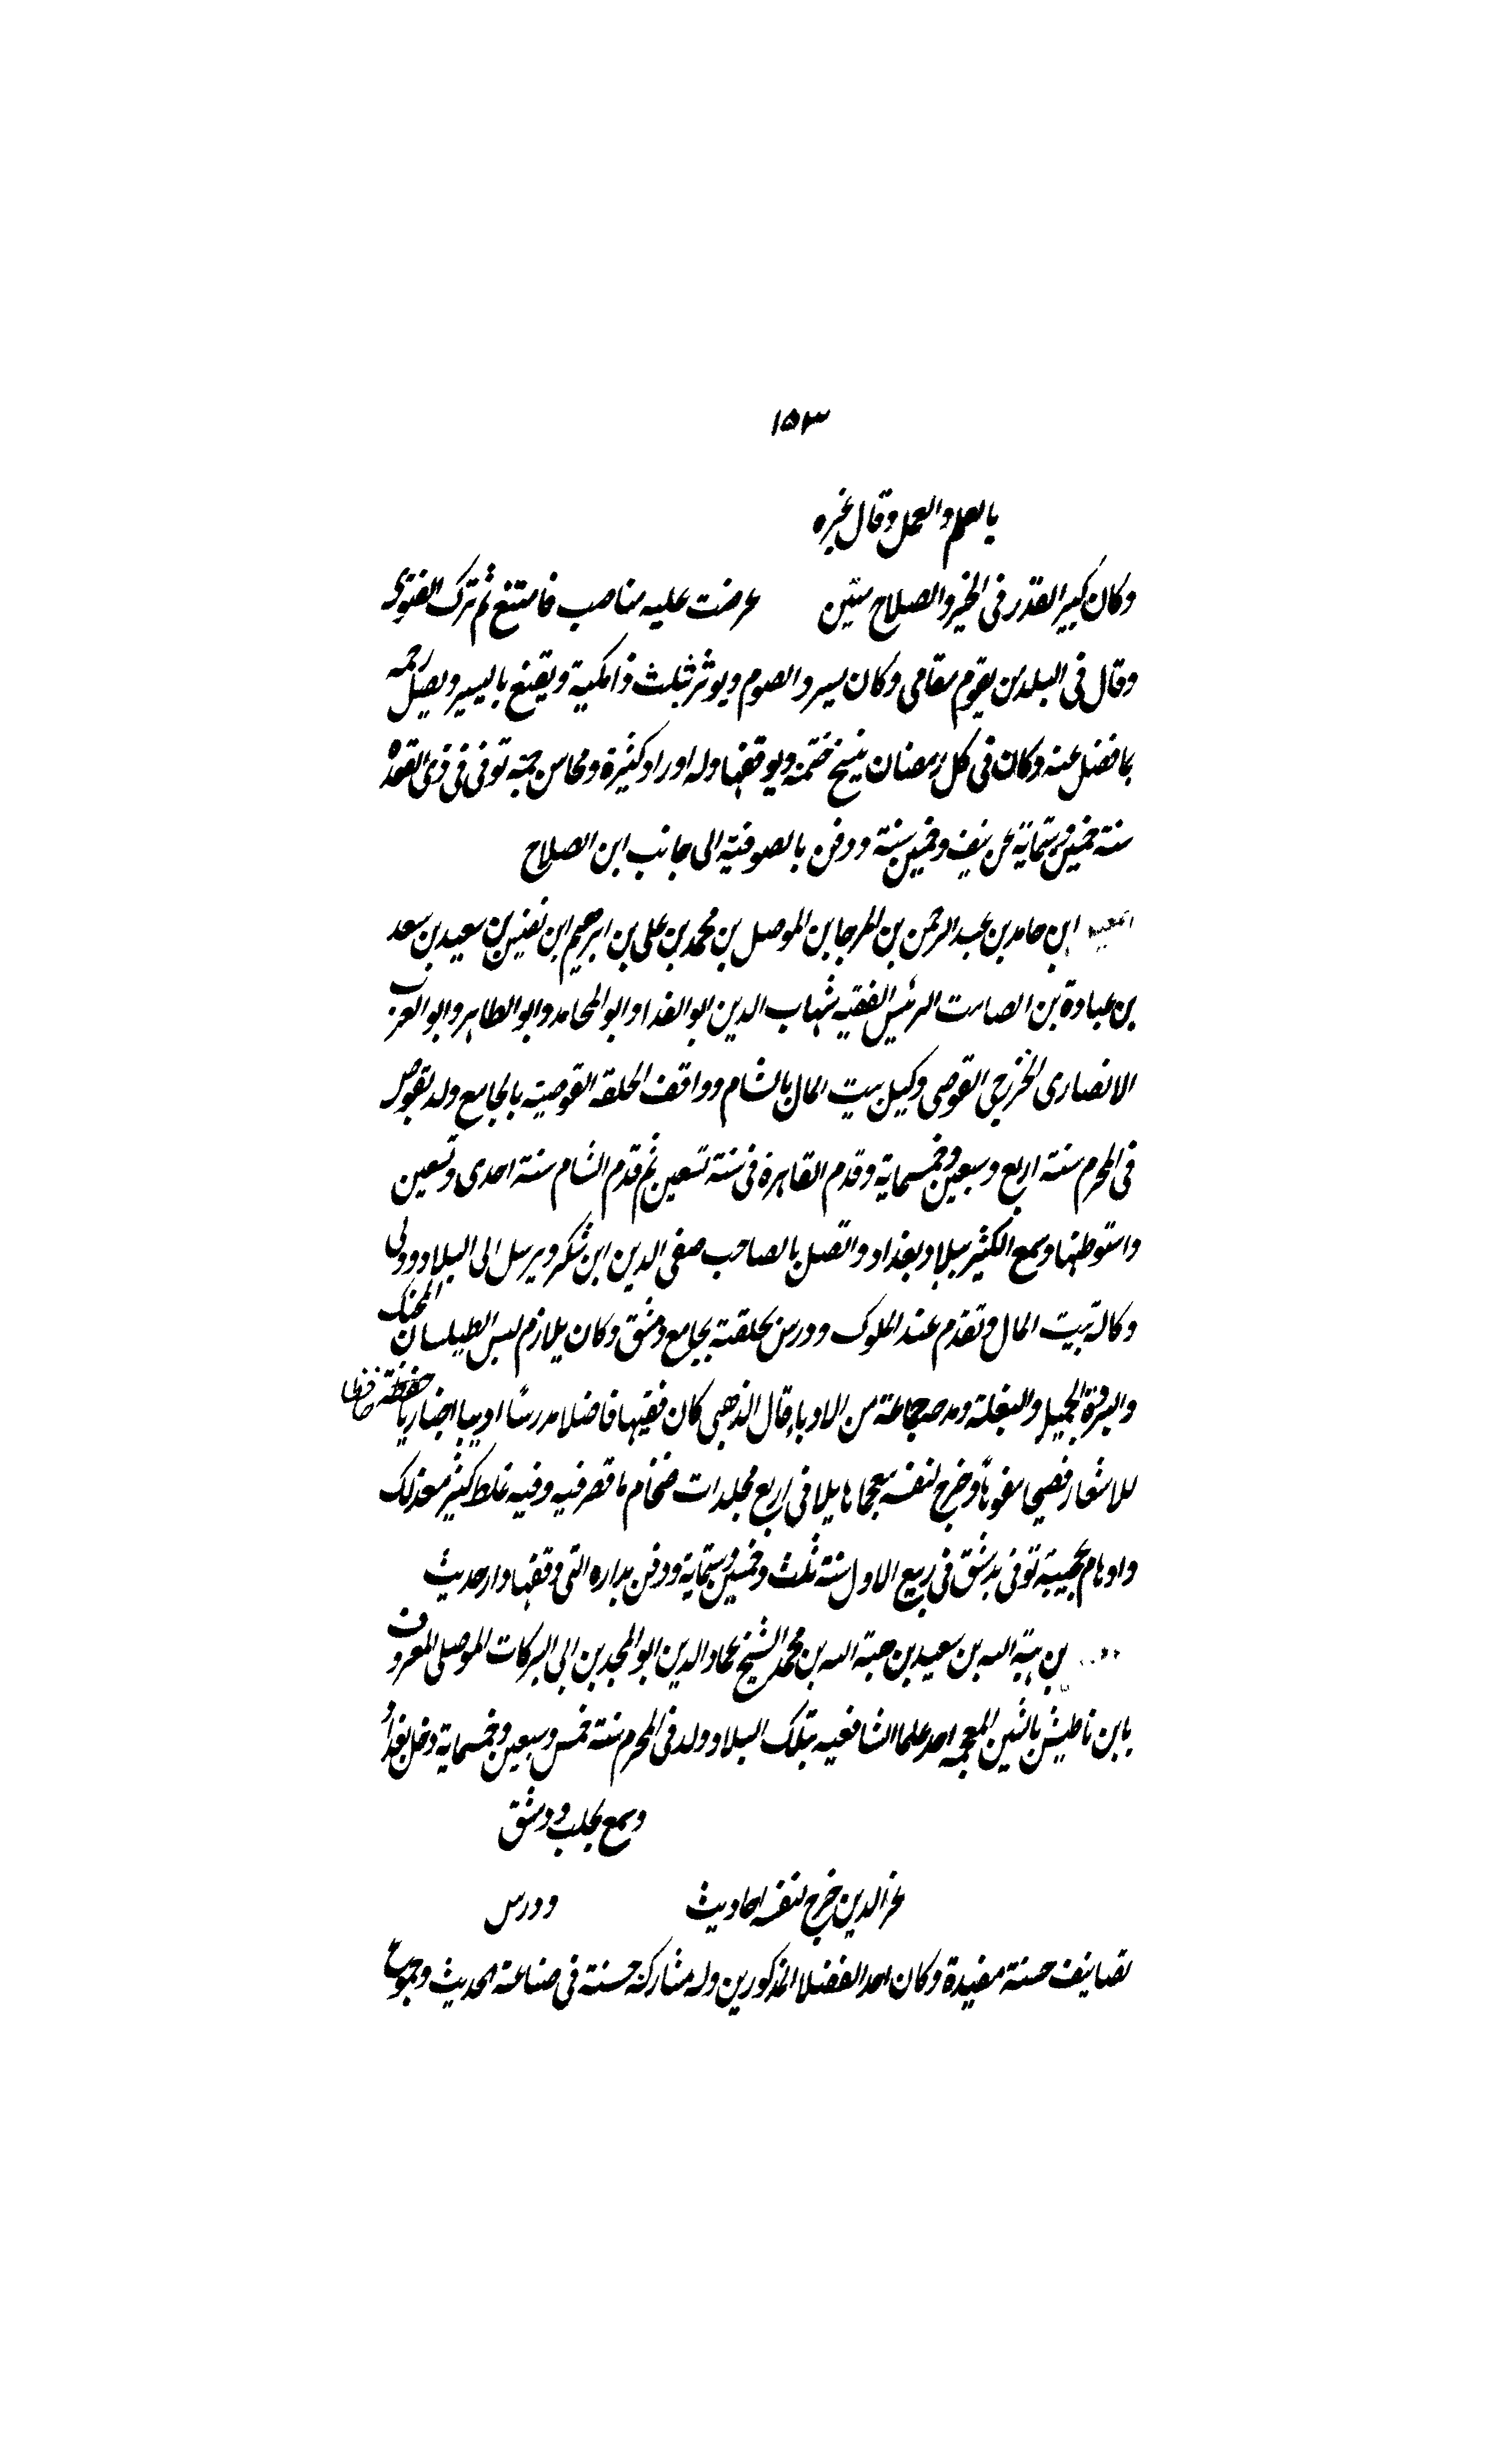 ١٥٣
بالعلم والعمل وقال غيره
وكان كبير القدر في الخير والصلاح متين عرضت عليه مناصب فامتنع ثم ترك الفتوى
وقال في البلد من يقوم مقامي وكان يسرد الصوم ويوثر بثلث ويقنع باليسير ويصل رحمه
بما فضل عنه وكان في كل رمضان ينسخ ختمة ويوقفها وله اوراد كثيرة ومحاسن جمة توفي في ذي القعدة
سنة خمسين وستماية عن نيف وخمسين سنة ودفن بالصوفية الى جانب ابن الصلاح
ابن حامد بن عبد الرحمن بن المرجا بن الموصل بن محمد بن علي بن ابرهيم ابن نفيس بن سعيد بن سعد
بن عبادة بن الصامت الرئيس الفقيه شهاب الدين ابو الفدا وابو المحامد وابو الطاهر وابو العرب
الانصاري الخزرجي القوصي وكيل بيت المال بالشام وواقف الحلقة القوصية بالجامع ولد بقوص
في المحرم سنة اربع وسبعين وخمسماية وقدم القاهرة في سنة تسعين ثم قدم الشام سنة احدى وتسعين
واستوطنها وسمع الكثير ببلاد بغداد واتصل بالصاحب صفي الدين ابن شكر ويرسل الى البلاد وولى
وكالة بيت المال وتقدم عند الملوك ودرس بحلقته بجامع دمشق وكان يلازم لبس الطيلسان المحنك
والبزة الجميلة والبغلة ومدحه جماعة من الادباء قال الذهبي كان فقيها فاضلا مدرسا اديبا اخباريا حفظة
للاشعار فصيحا مفوها وخرج لنفسه معجما هايلا في اربع مجلدات ضخام ما قصر فيه وفيه غلط كثير مع ذلك
واوهام عجيبة توفي بدمشق في ربيع الاول سنة ثلث وخمسين وستماية ودفن بداره التي وقفها دار حديث
بن هبة الله بن سعيد بن هبة الله بن محمد الشيخ عماد الدين ابو المجد بن ابي البركات الموصلي المعروف
بابن باطيش بالشين المعجمة احد علما الشافعية بتلك البلاد ولد في المحرم سنة خمس وسبعين وخمسماية دخل بغداد
وسمع بحلب ودمشق
عز الدين خرج لنفسه احاديث ودرس
تصانيف حسنة مفيدة وكان احد الفضلا المذكورين وله مشاركة حسنة في صناعة الحديث وجموع